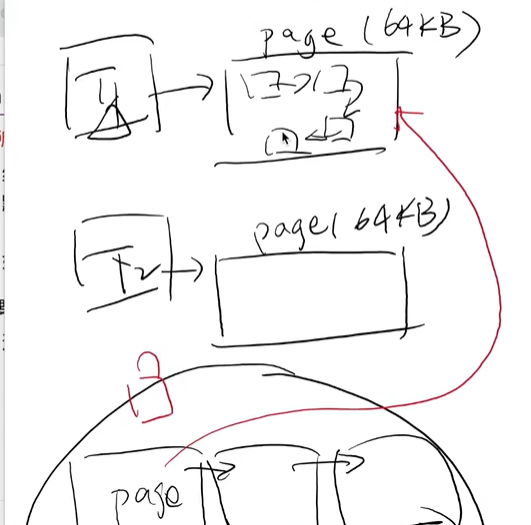 page (64KB)
T1
page( 64KB)
T2
page